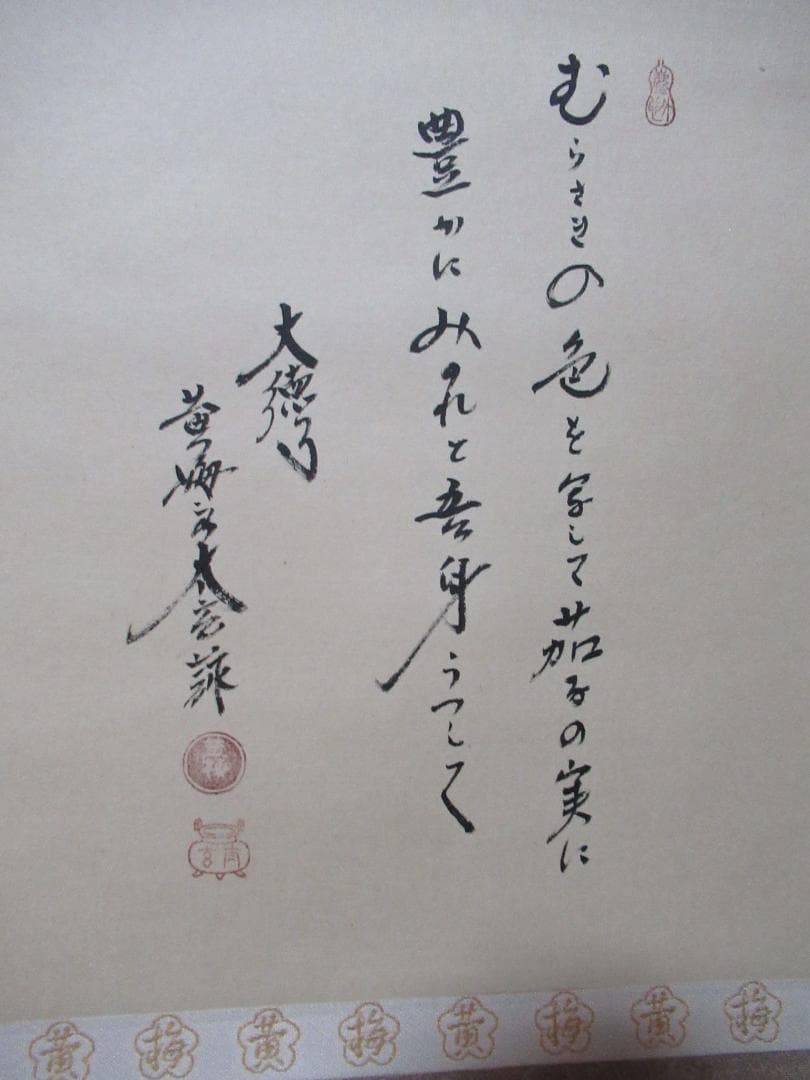 むらさきの色を写して茄子の実に
豊かにみのれと吾身うつして
大徳寺
黄梅院太玄誌
黄 梅 黄 梅 黄 梅 黄 梅